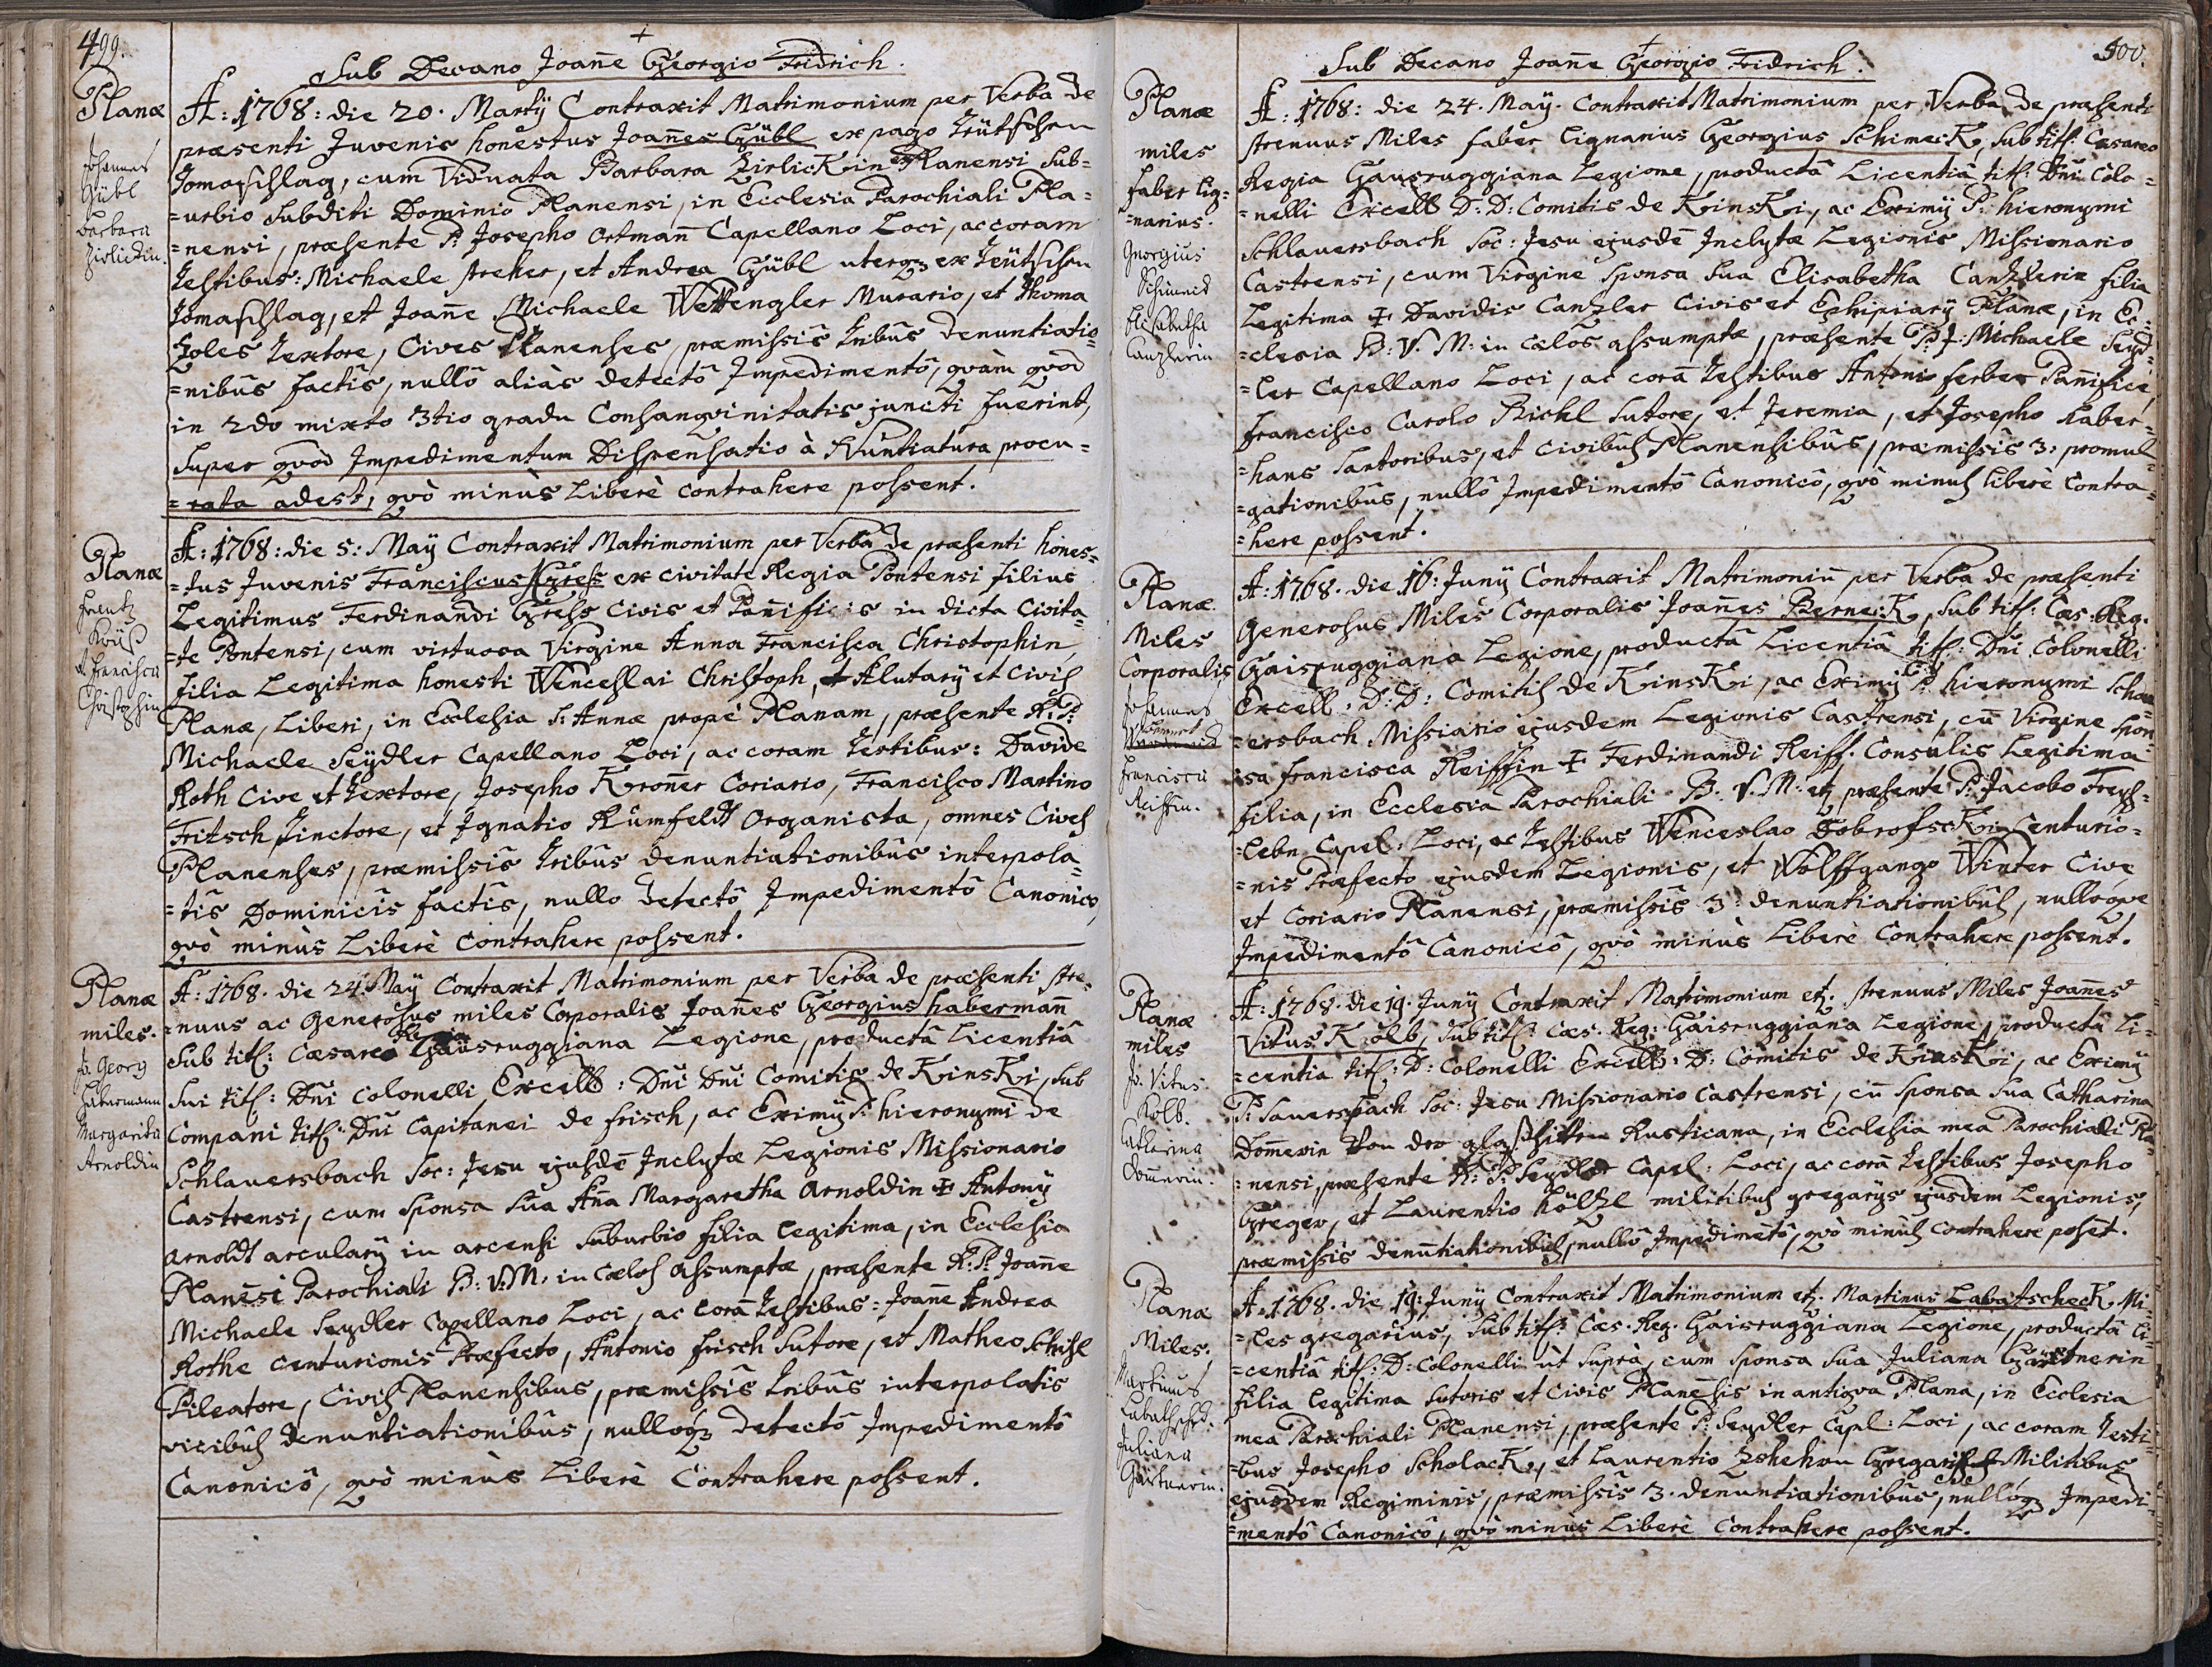 499.
Sub Decano Joane Georgio Fridrich.
Planæ
Johannes
Gübl
Barbara
Zirlickin.
A: 1768: die 20. Martÿ Contraxit Matrimonium per Verba de
præsenti Juvenis honestus Joañes Gübl ex pago Teütschen
Tomaschlag, cum Viduata Barbara Zirlickin ex Planensi Sub=
=urbio Subditi Dominio Planensi, in Ecclesia Parochiali Pla=
=nensi, præsente P: Josepho Ortmañ Capellano Loci, ac coram
Testibus: Michaele Streher, et Andrea Gübl uterq3 ex Teütschen
Tomaschlag, et Joañe Michaele Wettengler Murario, et Thoma
Zoles Textore, Cives Planenses, præmissis tribûs denuntiatio=
=nibûs factîs, nullô aliàs detectô Impedimentô, qvàm qvod
in 2do mixto 3tio gradu Consangvinitatis juncti fuerint,
Super qvod Impedimentum Dispensatio à Nuntiatura procu=
=rata adest, qvò minùs Liberè contrahere possent.
Planæ
Frantz
Kreß
et Francisca
Christophin
A: 1768: die 5: Maÿ Contraxit Matrimonium per Verba de præsenti hones=
=tus Juvenis Franciscus Gress ex civitate Regia Pontensi filius
Legitimus Ferdinandi Gress Civis et Pañificis in dicta Civita=
=te Pontensi, cum virtuosa Virgine Anna Francisca Christophin,
filia Legitima honesti Wenceslai Christoph, Alutarÿ et Civis
Planæ, Liberi, in Ecclesia S: Annæ propè Planam, præsente R: P:
Michaele Seÿdler Capellano Loci, ac coram testibus: Davide
Roth Cive et Textore, Josepho Kroñer Coriario, Francisco Martino
Fritsch Tinctore, et Ignatio Rümfeldt Organista, omnes Cives
Planenses, præmissîs tribûs denuntiationibûs interpola=
=tîs Dominicîs factîs, nullo detectô Impedimentô Canonicô,
qvò minùs Liberè Contrahere possent.
Planæ
miles.
Jo. Georg
Habermann
Margaritha
Arnoldin
A: 1768. die 24. Maÿ Contraxit Matrimonium per Verba de præsenti stre=
=nuus ac Generosus miles Corporalis Joañes Georgius Habermañ
Sub titl: Cæsareo Regia Gausruggiana Legione, productâ Licentiâ
Sui titl: Dñi Colonelli Excell: Dñi Dñi Comitis de Kinski, sub
Compani titl: Dñi Capitanei de Frisch, ac Eximÿ P: Hieronymi de
Schlauersbach Soc: Jesu ejusdē Inclytæ Legionis Missionario
Castrensi, cum Sponsa Sua Aña Margaretha Arnoldin ✝ Antonÿ
Arnoldt arcularÿ in arcensi Suburbio filia legitima, in Ecclesia
Planēsi Parochiali B: V. M. in Cœlos Assumptæ, præsente R: P: Joañe
Michaele Seydler Capellano Loci, ac corā Testibus: Joañe Andrea
Rothe Centurionis Præfecto, Antonio Frisch Sutore, et Matheo Schihl
Pileatore, Civis Planensibus, præmissîs tribûs interpolatis
vicibus denuntiationibûs, nulloq3 detectô Impedimentô
Canonicô, qvò minùs Liberè Contrahere possent.
500.
Sub Decano Joañe Georgio Fridrich.
Planæ
miles
faber lig=
=narius.
Georgius
Schimeck
Elisabetha
Canzlerin
A: 1768: die 24. Maÿ. Contraxit Matrimonium per Verba de præsenti
strenuus Miles faber lignarius Georgius Schimeck, sub titl: Cæsareo
Regia Gausruggiana Legione, productâ Licentiâ titl: Dñi Colo=
=nelli Excell: D: D: Comitis de Kinski, ac Eximÿ P: Hieronymi
Schlauersbach Soc: Jesu ejusdē Inclytæ Legionis Missionario
Castrensi, cum Virgine Sponsa Sua Elisabetha Canzlerin filia
Legitima ✝ Davidis Canzler Civis et Ephipiarÿ Planæ, in Ec=
=clesia B: V. M: in Cœlos assumptæ, præsente P: J: Michaele Seyd=
=ler Capellano Loci, ac corā Testibus Antonio Ferber Pañifice,
Francisco Carolo Bichl Sutore, et Jeremia, et Josepho Haber=
=hans Sartoribus, et Civibus Planensibûs, præmissîs 3: promul=
=gationibûs, nullô Impedimentô Canonicô, qvò minus liberè Contra=
=here possent.
Planæ
Miles
Corporalis
Johannes
Francisca
Reiffin.
A: 1768. die 16: Junÿ Contraxit Matrimoniū per Verba de præsenti
Generosus Miles Corporalis Joañes Berneck, Sub titl: Cæs: Reg.
Gaisruggiana Legione, productâ Licentiâ titl: Dñi Colonelli
Excell: D: D: Comitis de Kinski, ac Eximÿ P: Hieronymi Schau=
=ersbach Missiario ejusdem Legionis Castrensi, cū Virgine Spon=
=sa Francisca Reiffin ✝ Ferdinandi Reiff. Consulis Legitima
filia, in Ecclesia Parochiali B. V. M. etz præsente P: Jacobo Freys=
=lebn Capel: Loci, ac Testibus Wenceslao Dobrofscki Centurio=
=nis Præfecto ejusdem Legionis, et Wolffgango Winter Cive
et Coriario Planensi, præmissis 3: denuntiationibus, nulloqve
Impedimentô Canonicô, qvò minùs Liberè Contrahere possent.
Planæ
miles
Jo. Vitus
Kolb.
Catharina
Domerin.
A: 1768. die 19. Junÿ Contraxit Matrimonium etz. strenuus Miles Joañes
Vitus Kolb, sub titl: Cæs. Reg: Gaisruggiana Legione, productâ Li=
=centia titl: D: Colonelli Excell: D: Comitis de Kinski, ac Eximÿ
P: Sauersbach Soc: Jesu Missionario Castrensi, cū Sponsa Sua Catharina
Domerin Von der glasshütten Rusticana, in Ecclesia mea Parochiali Pla=
=nensi, præsente R: P: Seydler Capel: Loci, ac corā Testibus Josepho
Greger, et Laurentio Höltzl militibus gregarÿs ejusdem Legionis,
præmissis denuntiationibus, nullô Impedimētô, qvò minus contrahere posset.
Planæ
Miles.
Martinus
Labathsche.
Juliana
Gärtnerin.
A: 1768. die 19: Junÿ Contraxit Matrimonium etz. Martinus Labatscheck, Mi=
=les gregarius, Sub titl: Cæs. Reg. Gaisruggiana Legione, productâ li=
=centiâ titl: D: Colonelli ut Suprà, cum Sponsa Sua Juliana Gärtnerin
filia legitima Sutoris et Civis Planēsis in antiqva Plana, in Ecclesia
mea Parochiali Planensi, præsente P: Seydler Capl: Loci, ac coram Testi=
=bus Josepho Scholack, et Laurentio Zehehon Gregarÿs Militibus
ejusdem Regiminis, præmissis 3. denuntiationibûs, nullôq3 Impedi=
=mentô Canonicô, qvò minùs Liberè Contrahere possent.